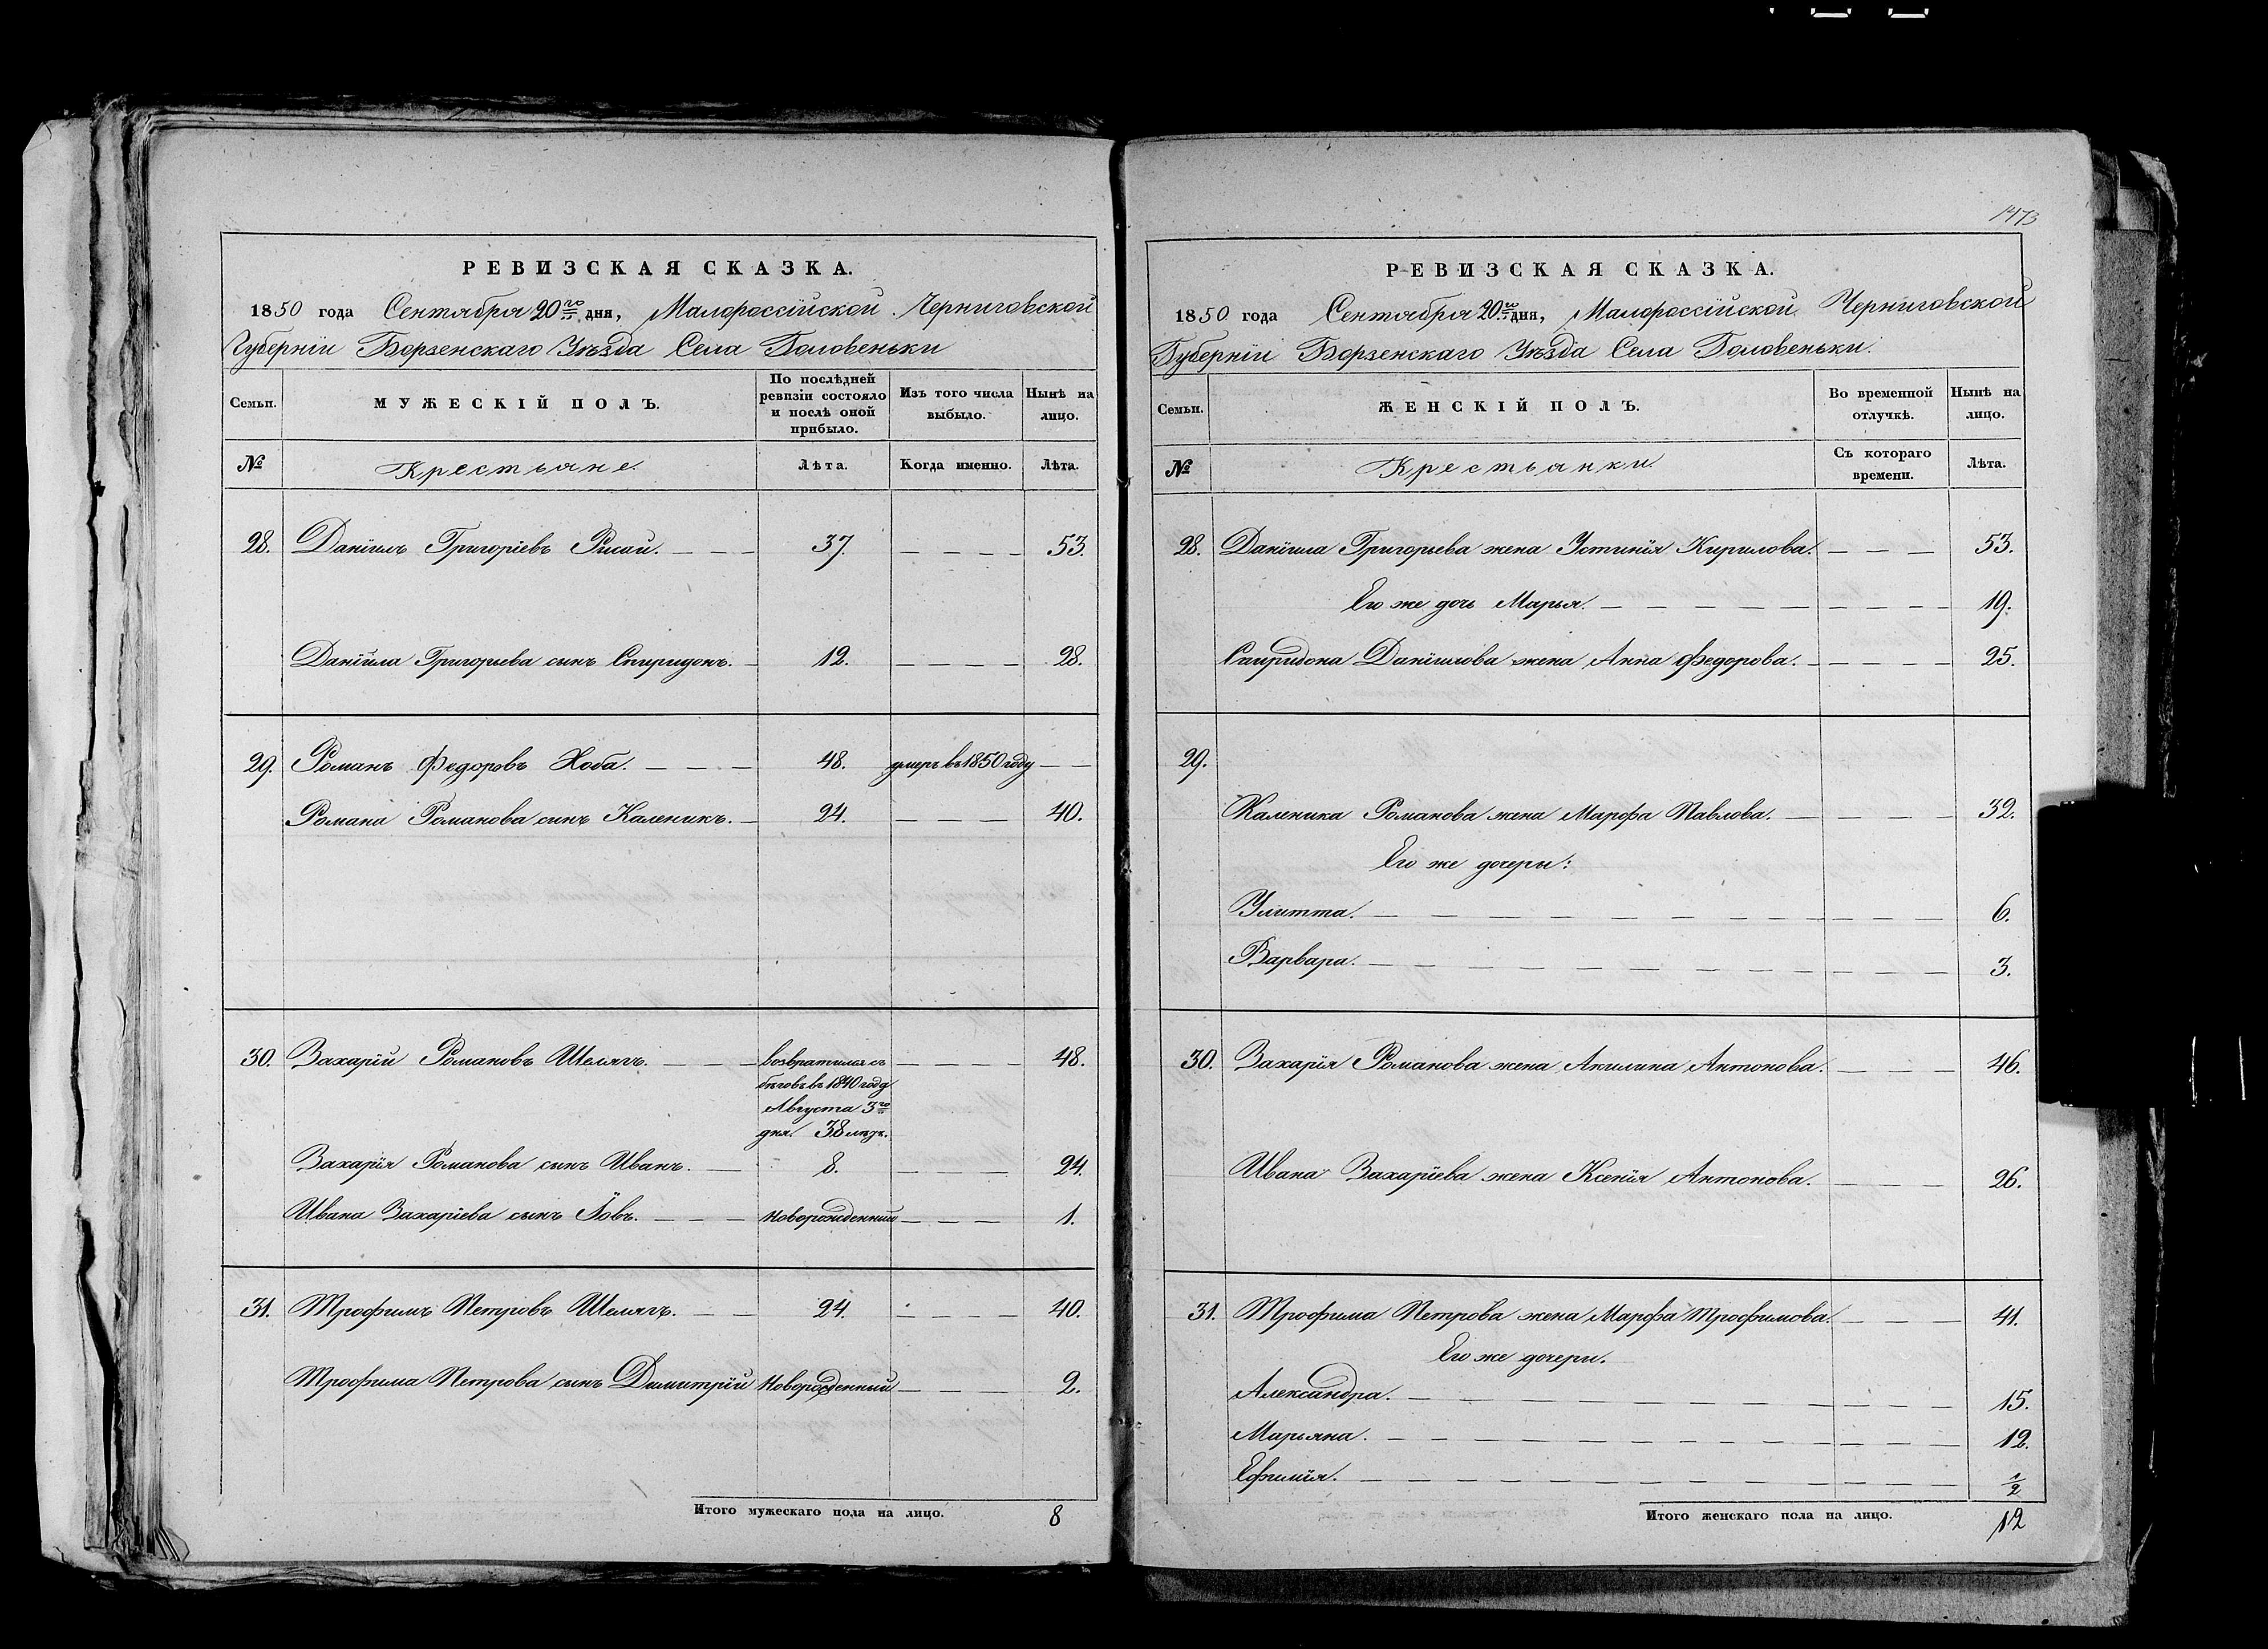 РЕВИЗСКАЯ СКАЗКА.
1850 года Сентября 20го дня, Малороссійской Черниговской
Губерніи Борзенскаго Уѣзда Села Головеньки
Семьи. МУЖЕСКІЙ ПОЛЪ. По послѣдней ревизіи состояло и послѣ оной прибыло. Изъ того числа выбыло. Нынѣ на лицо.
№ Крестьяне. Лѣта. Когда именно. Лѣта.
28. Даніилъ Григоріевъ 37. 53.
Даніила Григорьева сынъ Спиридонъ. 12. 28.
29. Романъ Федоровъ Хоба. 48. умеръ въ 1850 году
Романа Романова сынъ Каленикъ. 24. 40.
30. Захарій Романовъ Шелягъ. возвратился съ 48.
бѣговъ въ 1840 году
Августа 3го
дня. 38 лѣтъ.
Захарія Романова сынъ Иванъ. 8. 24.
Ивана Захаріева сынъ Іовъ. Новорожденный 1.
31. Трофимъ Петровъ Шелягъ. 24. 40.
Трофима Петрова сынъ Димитрій Новорожденный 2.
Итого мужескаго пола на лицо. 8
1473
РЕВИЗСКАЯ СКАЗКА.
1850 года Сентября 20го дня, Малороссійской Черниговской
Губерніи Борзенскаго Уѣзда Села Головеньки.
Семьи. ЖЕНСКІЙ ПОЛЪ. Во временной отлучкѣ. Нынѣ на лицо.
№ Крестьянки. Съ котораго времени. Лѣта.
28. Даніила Григорьева жена Устинія Кирилова. 53.
Его же дочь Марья. 19.
Спиридона Даніилова жена Анна Федорова. 25.
29.
Каленика Романова жена Марфа Павлова. 32.
Его же дочери:
Улитта. 6.
Варвара. 3.
30. Захарія Романова жена Акилина Антонова. 46.
Ивана Захаріева жена Ксенія Антонова. 26.
31. Трофима Петрова жена Марфа Трофимова. 41.
Его же дочери.
Александра. 15.
Марьяна. 12.
Ефимія. 1/2
Итого женскаго пола на лицо. 12